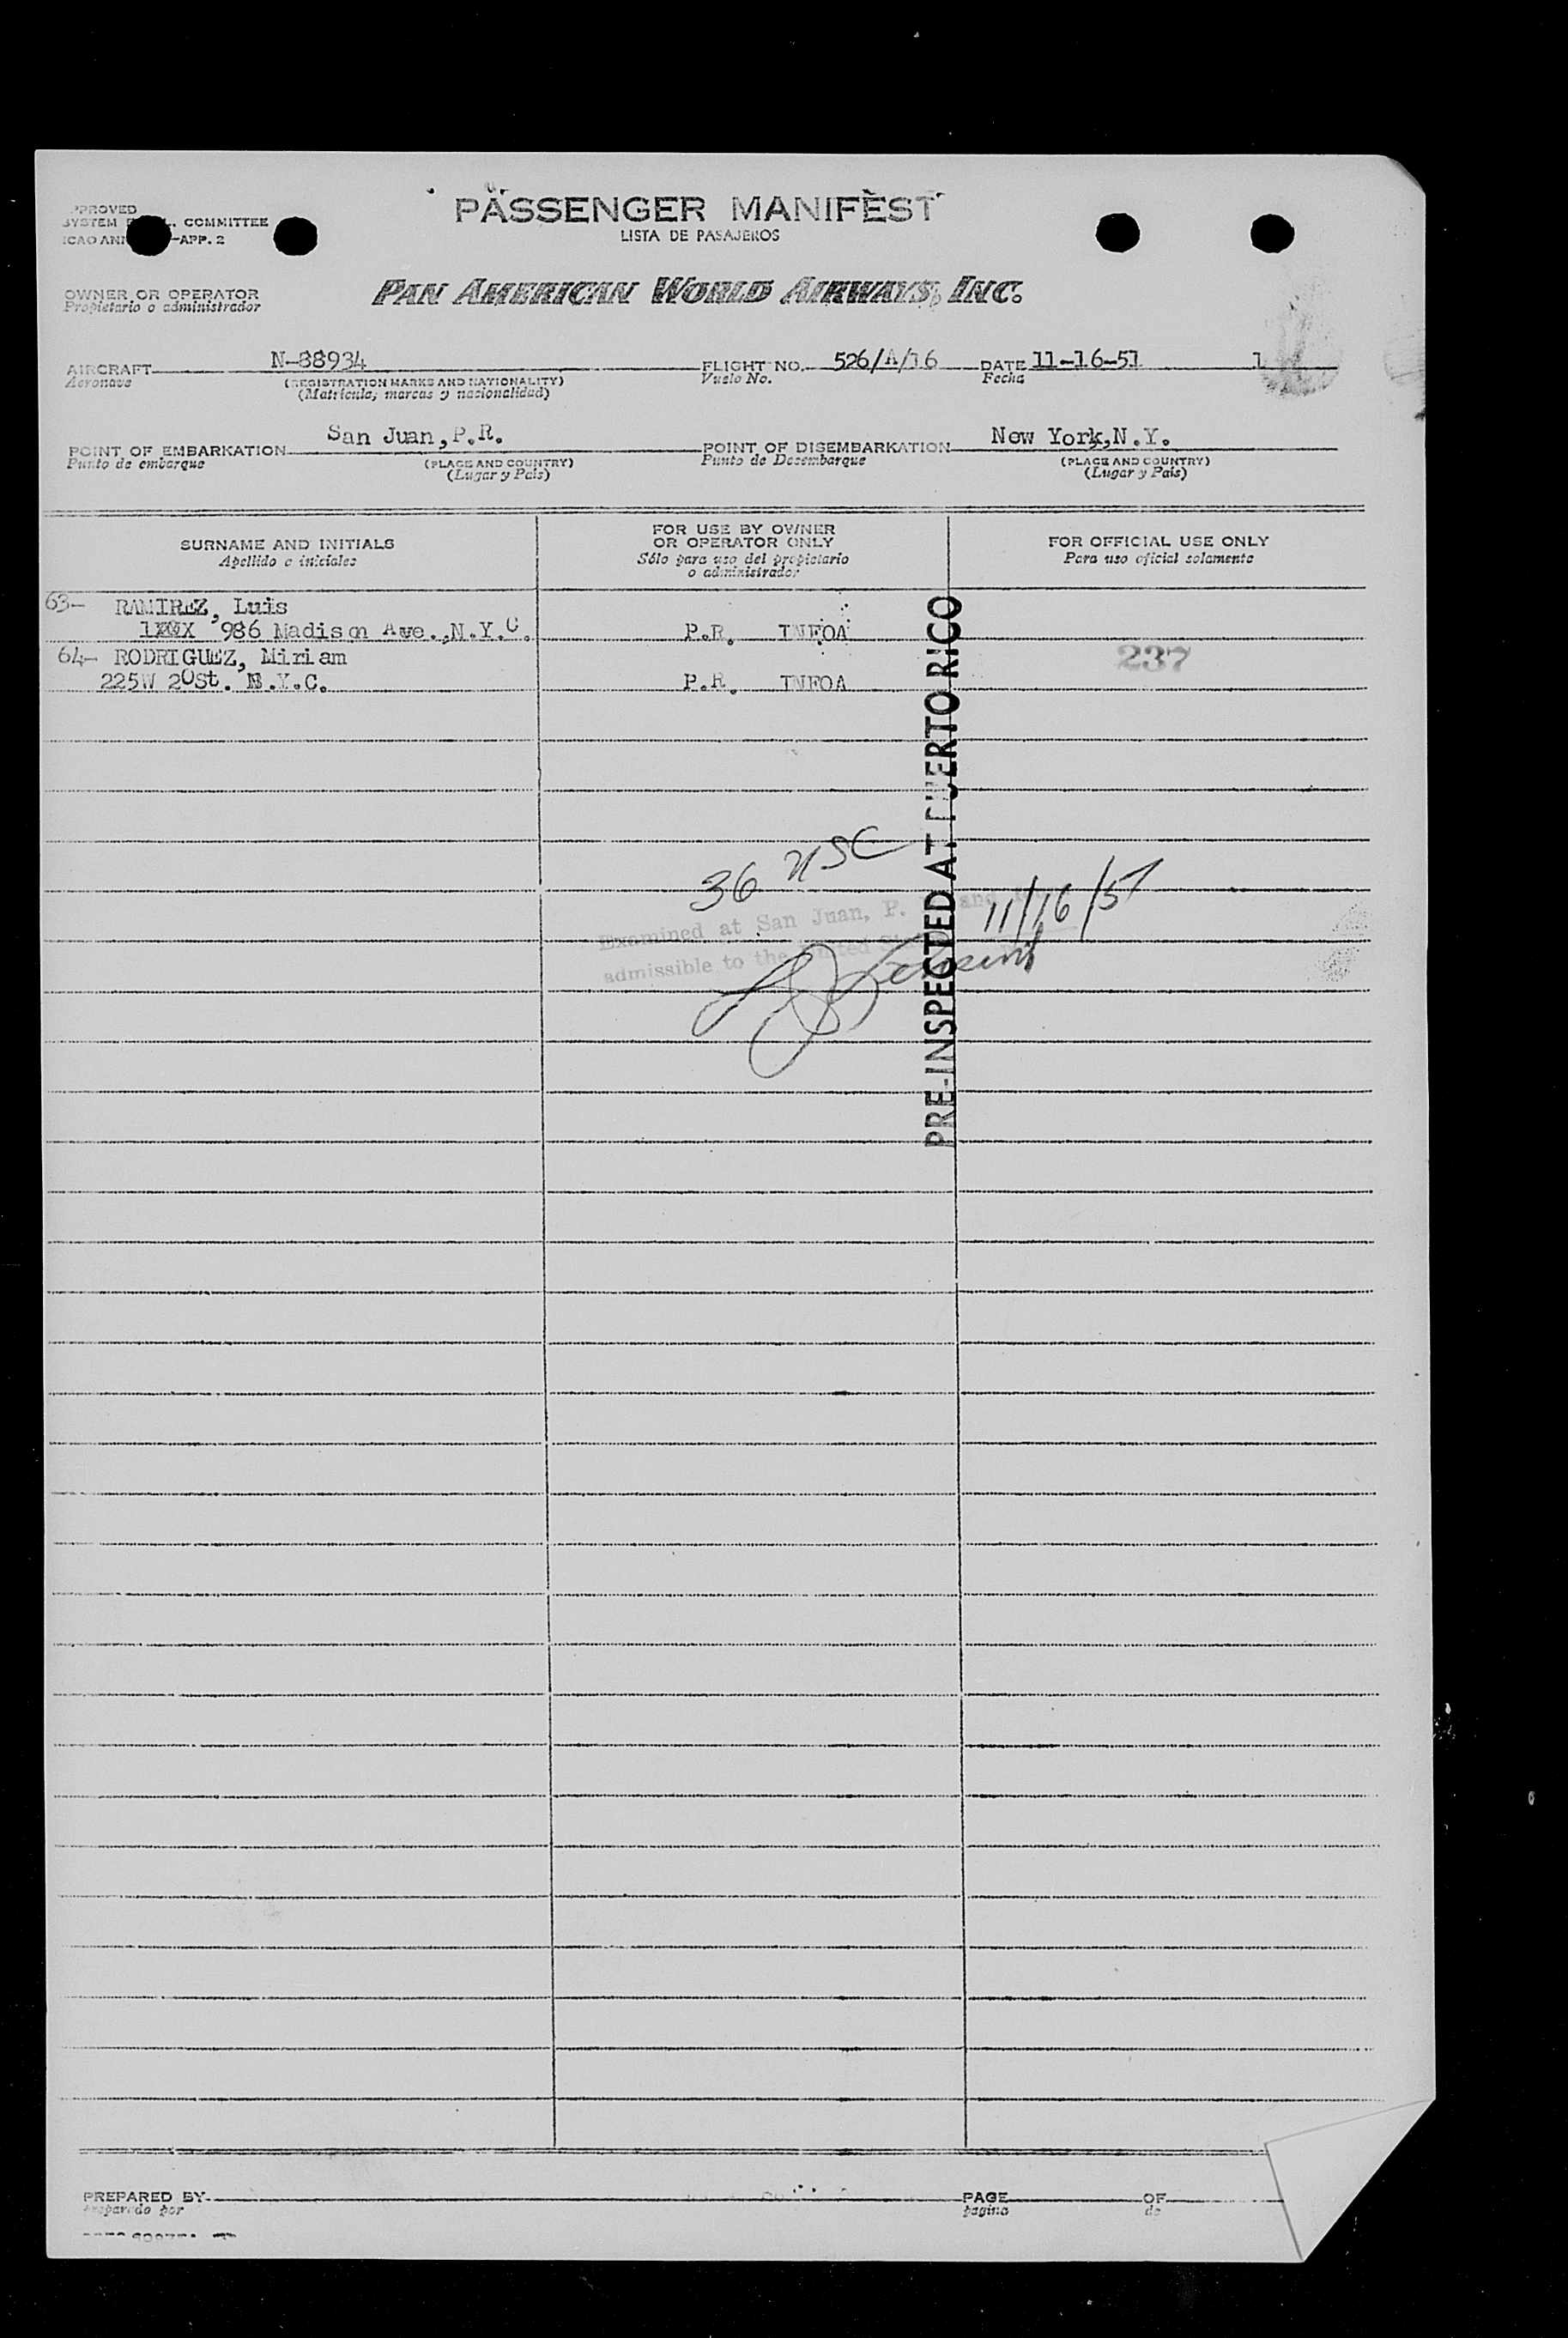 PASSENGER MANIFEST
LISTA DE PASAJEROS
SYSTEM COMMITTEE
ICAO -APP. 2
OWNER OR OPERATOR
Propietario o administrador
PAN AMERICAN WORLD AIRWAYS, INC.
AIRCRAFT N-88934 FLIGHT NO. 526/A/16 DATE 11-16-51 1
Aeronave (REGISTRATION MARKS AND NATIONALITY) Vuelo No. Fecha
(Matricula, marcas y nacionalidad)
POINT OF EMBARKATION San Juan, P.R. POINT OF DISEMBARKATION New York, N.Y.
Punto de embarque (PLACE AND COUNTRY) Punto de Desembarque (PLACE AND COUNTRY)
(Lugar y Pais) (Lugar y Pais)
SURNAME AND INITIALS
Apellido e iniciales
FOR USE BY OWNER
OR OPERATOR ONLY
Sólo para uso del propietario
o administrador
FOR OFFICIAL USE ONLY
Para uso oficial solamente
63- RAMIREZ, Luis
986 Madison Ave., N.Y.C. P.R. INFOA
64- RODRIGUEZ, Miriam 237
225W 20St. N.Y.C. P.R. INFOA
PRE-INSPECTED AT PUERTO RICO
36 USC
11/16/51
Examined at San Juan, P. and
admissible to the United
PREPARED BY PAGE OF
preparado por pagina de